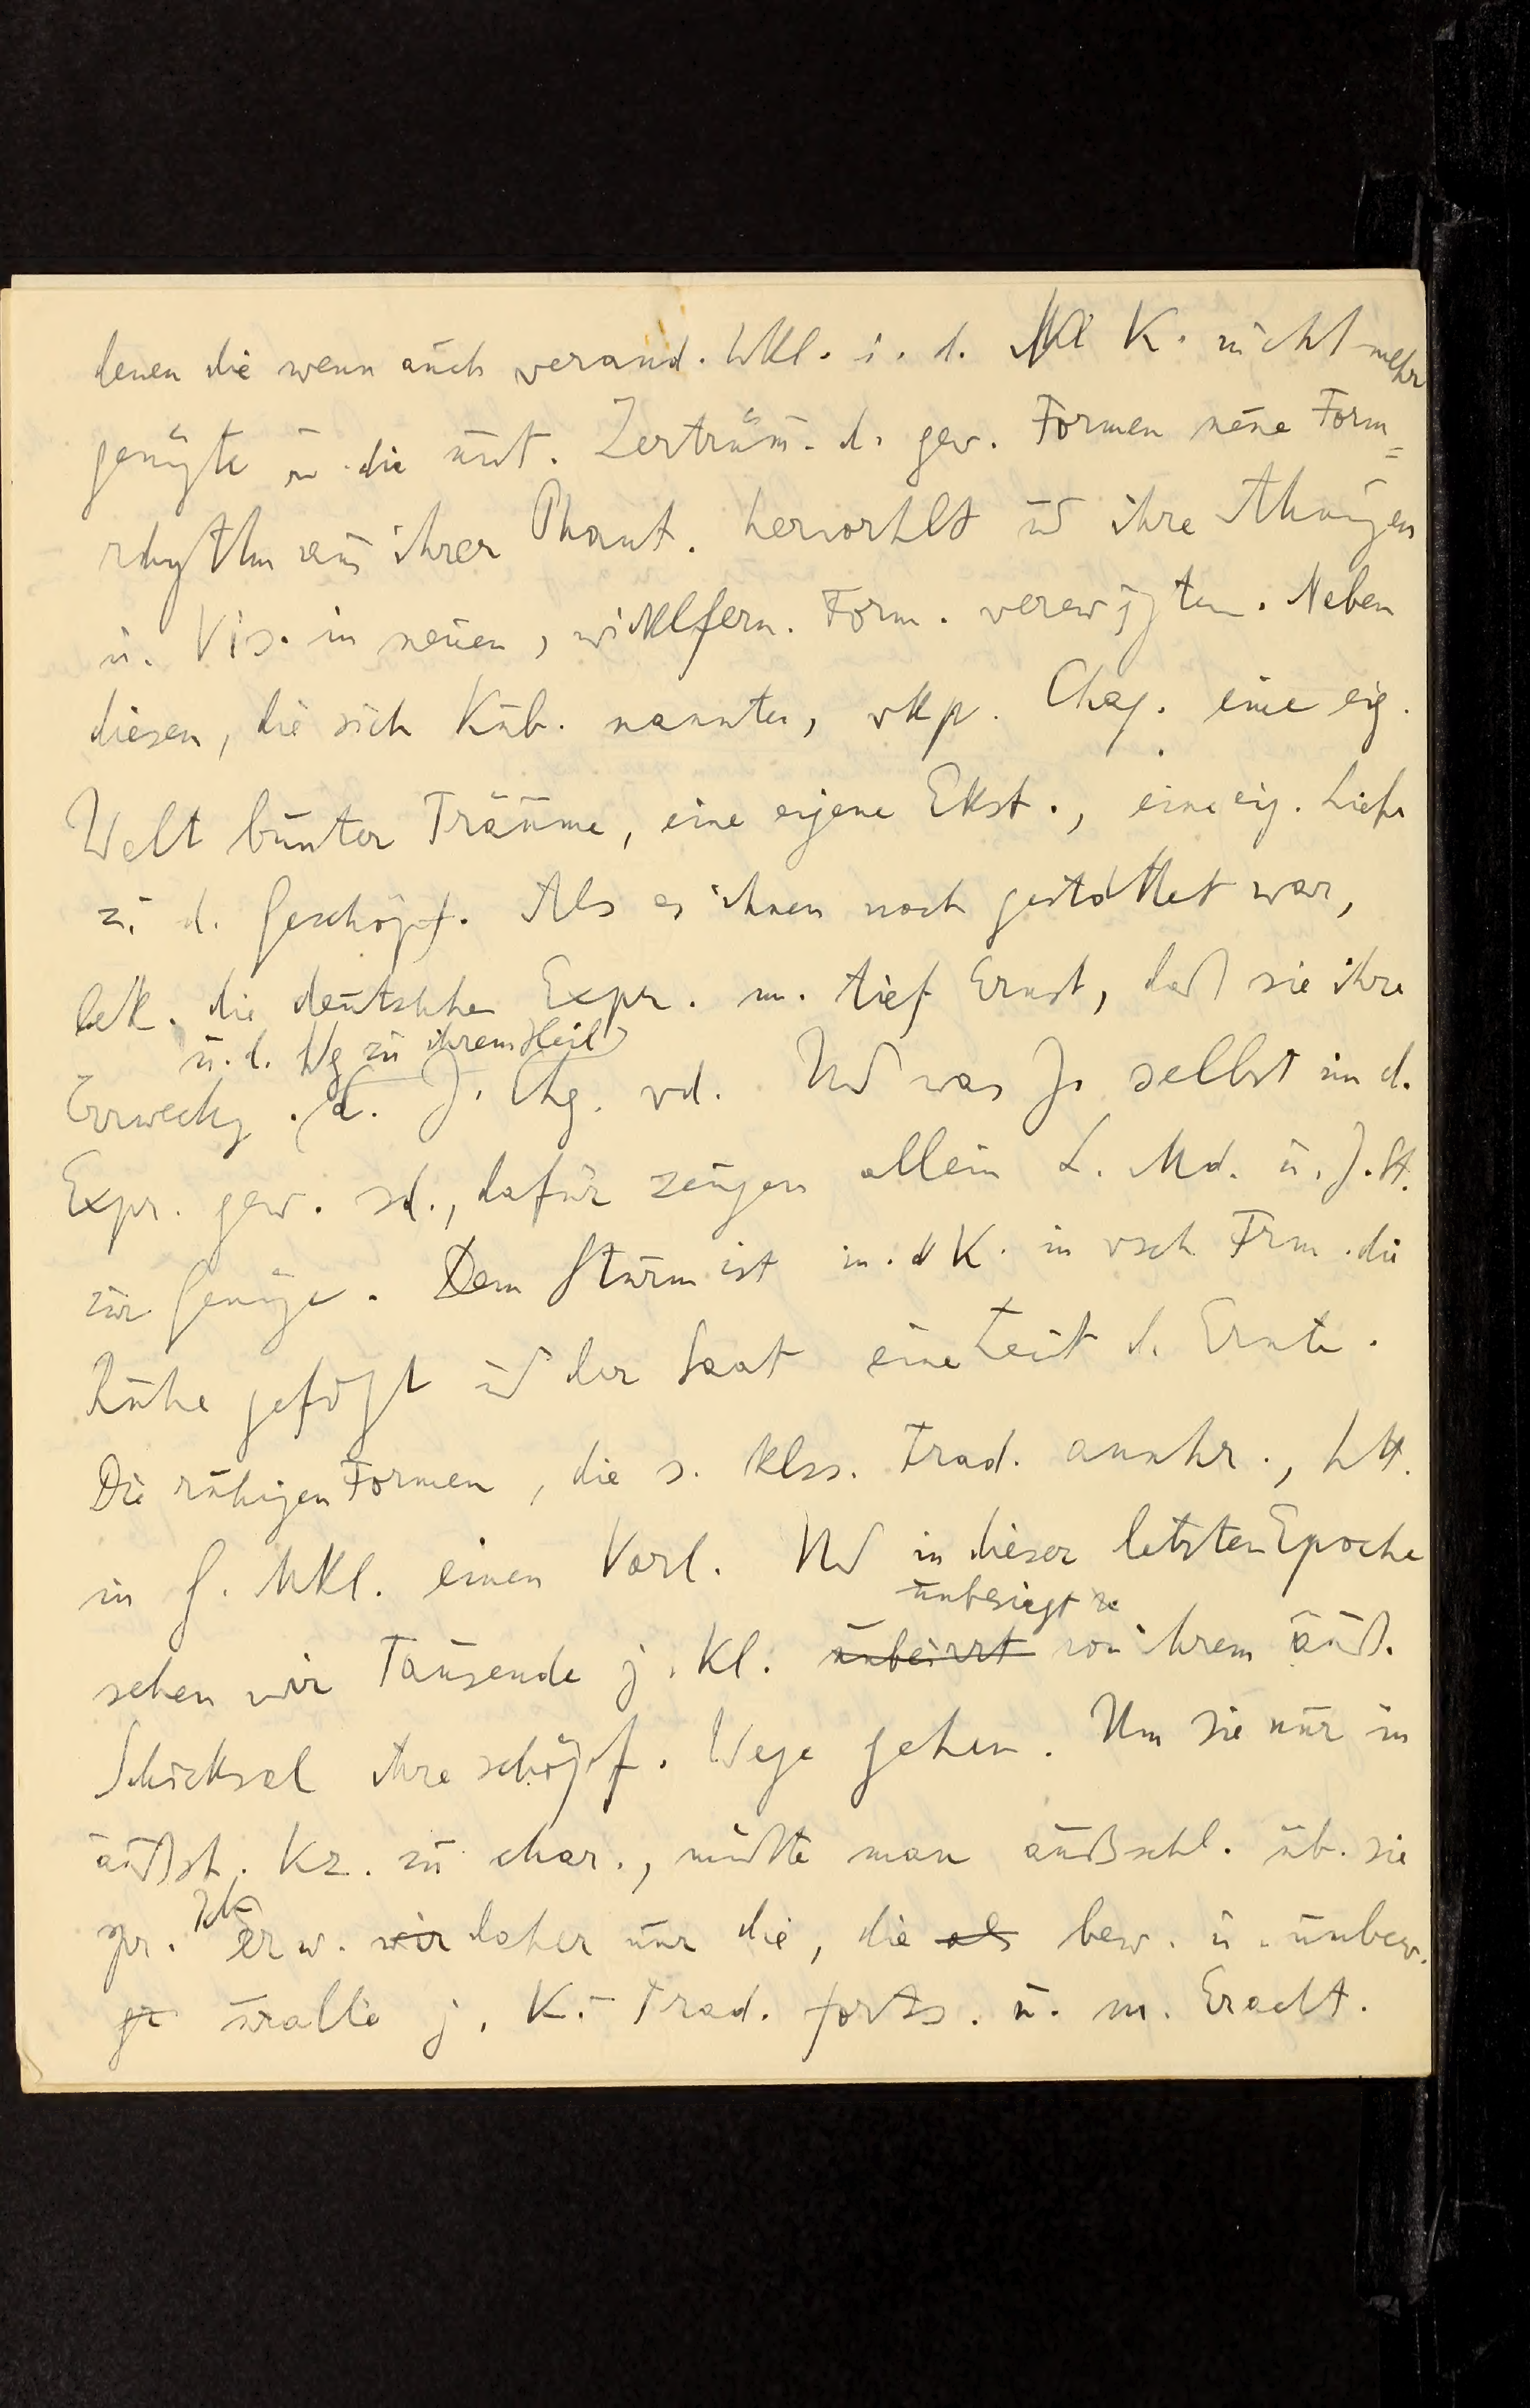 denen die wenn auch veränd. Wkl. i. d. Kl K. nicht mehr
genügte u. die unt. Zertrüm. d. gew. Formen neue Form=
rhythm aus ihrer Phant. hervorhlt und ihre Ahnungen
u. Vis. in neuen, wirklfern. Form. verewigten. Neben
diesen, die sich Kub. nannten, vkp. Chag. eine eig.
Welt bunter Träume, eine eigene Ekst., eine eig. Liebe
zu d. Geschöpf. Als es ihnen noch gestattet war,
bek. die deutschen Expr. m. tief Ernst, daß sie ihre
u. d. Wg zu ihrem Heil
Erweckg. d. J. Chg. vd. Und was J. selbst im d.
Expr. gew. sd., dafür zeugen allein L. Md. u. J. St.
zur Genüge. Dem Sturm ist in. d K. in vsch Frm. die
Ruhe gefolgt und der Saat eine Zeit d. Ernte.
Die ruhigen Formen, die s. klss. Trad. annhr., htt.
in G. Wkl. einen Vorl. Und in dieser letzten Epoche
unbesiegt
sehen wir Tausende j. Kl. unbeirrt von ihrem äuß.
Schicksal ihre schöpf. Wege gehen. Um sie nur in
äußst. Kz. zu char., müßte man außschl. üb. sie
spr. Ich erw. wir daher nur die, die als bew. u. unbew.
uralte j. K.-Trad. forts. u. m. Eracht.